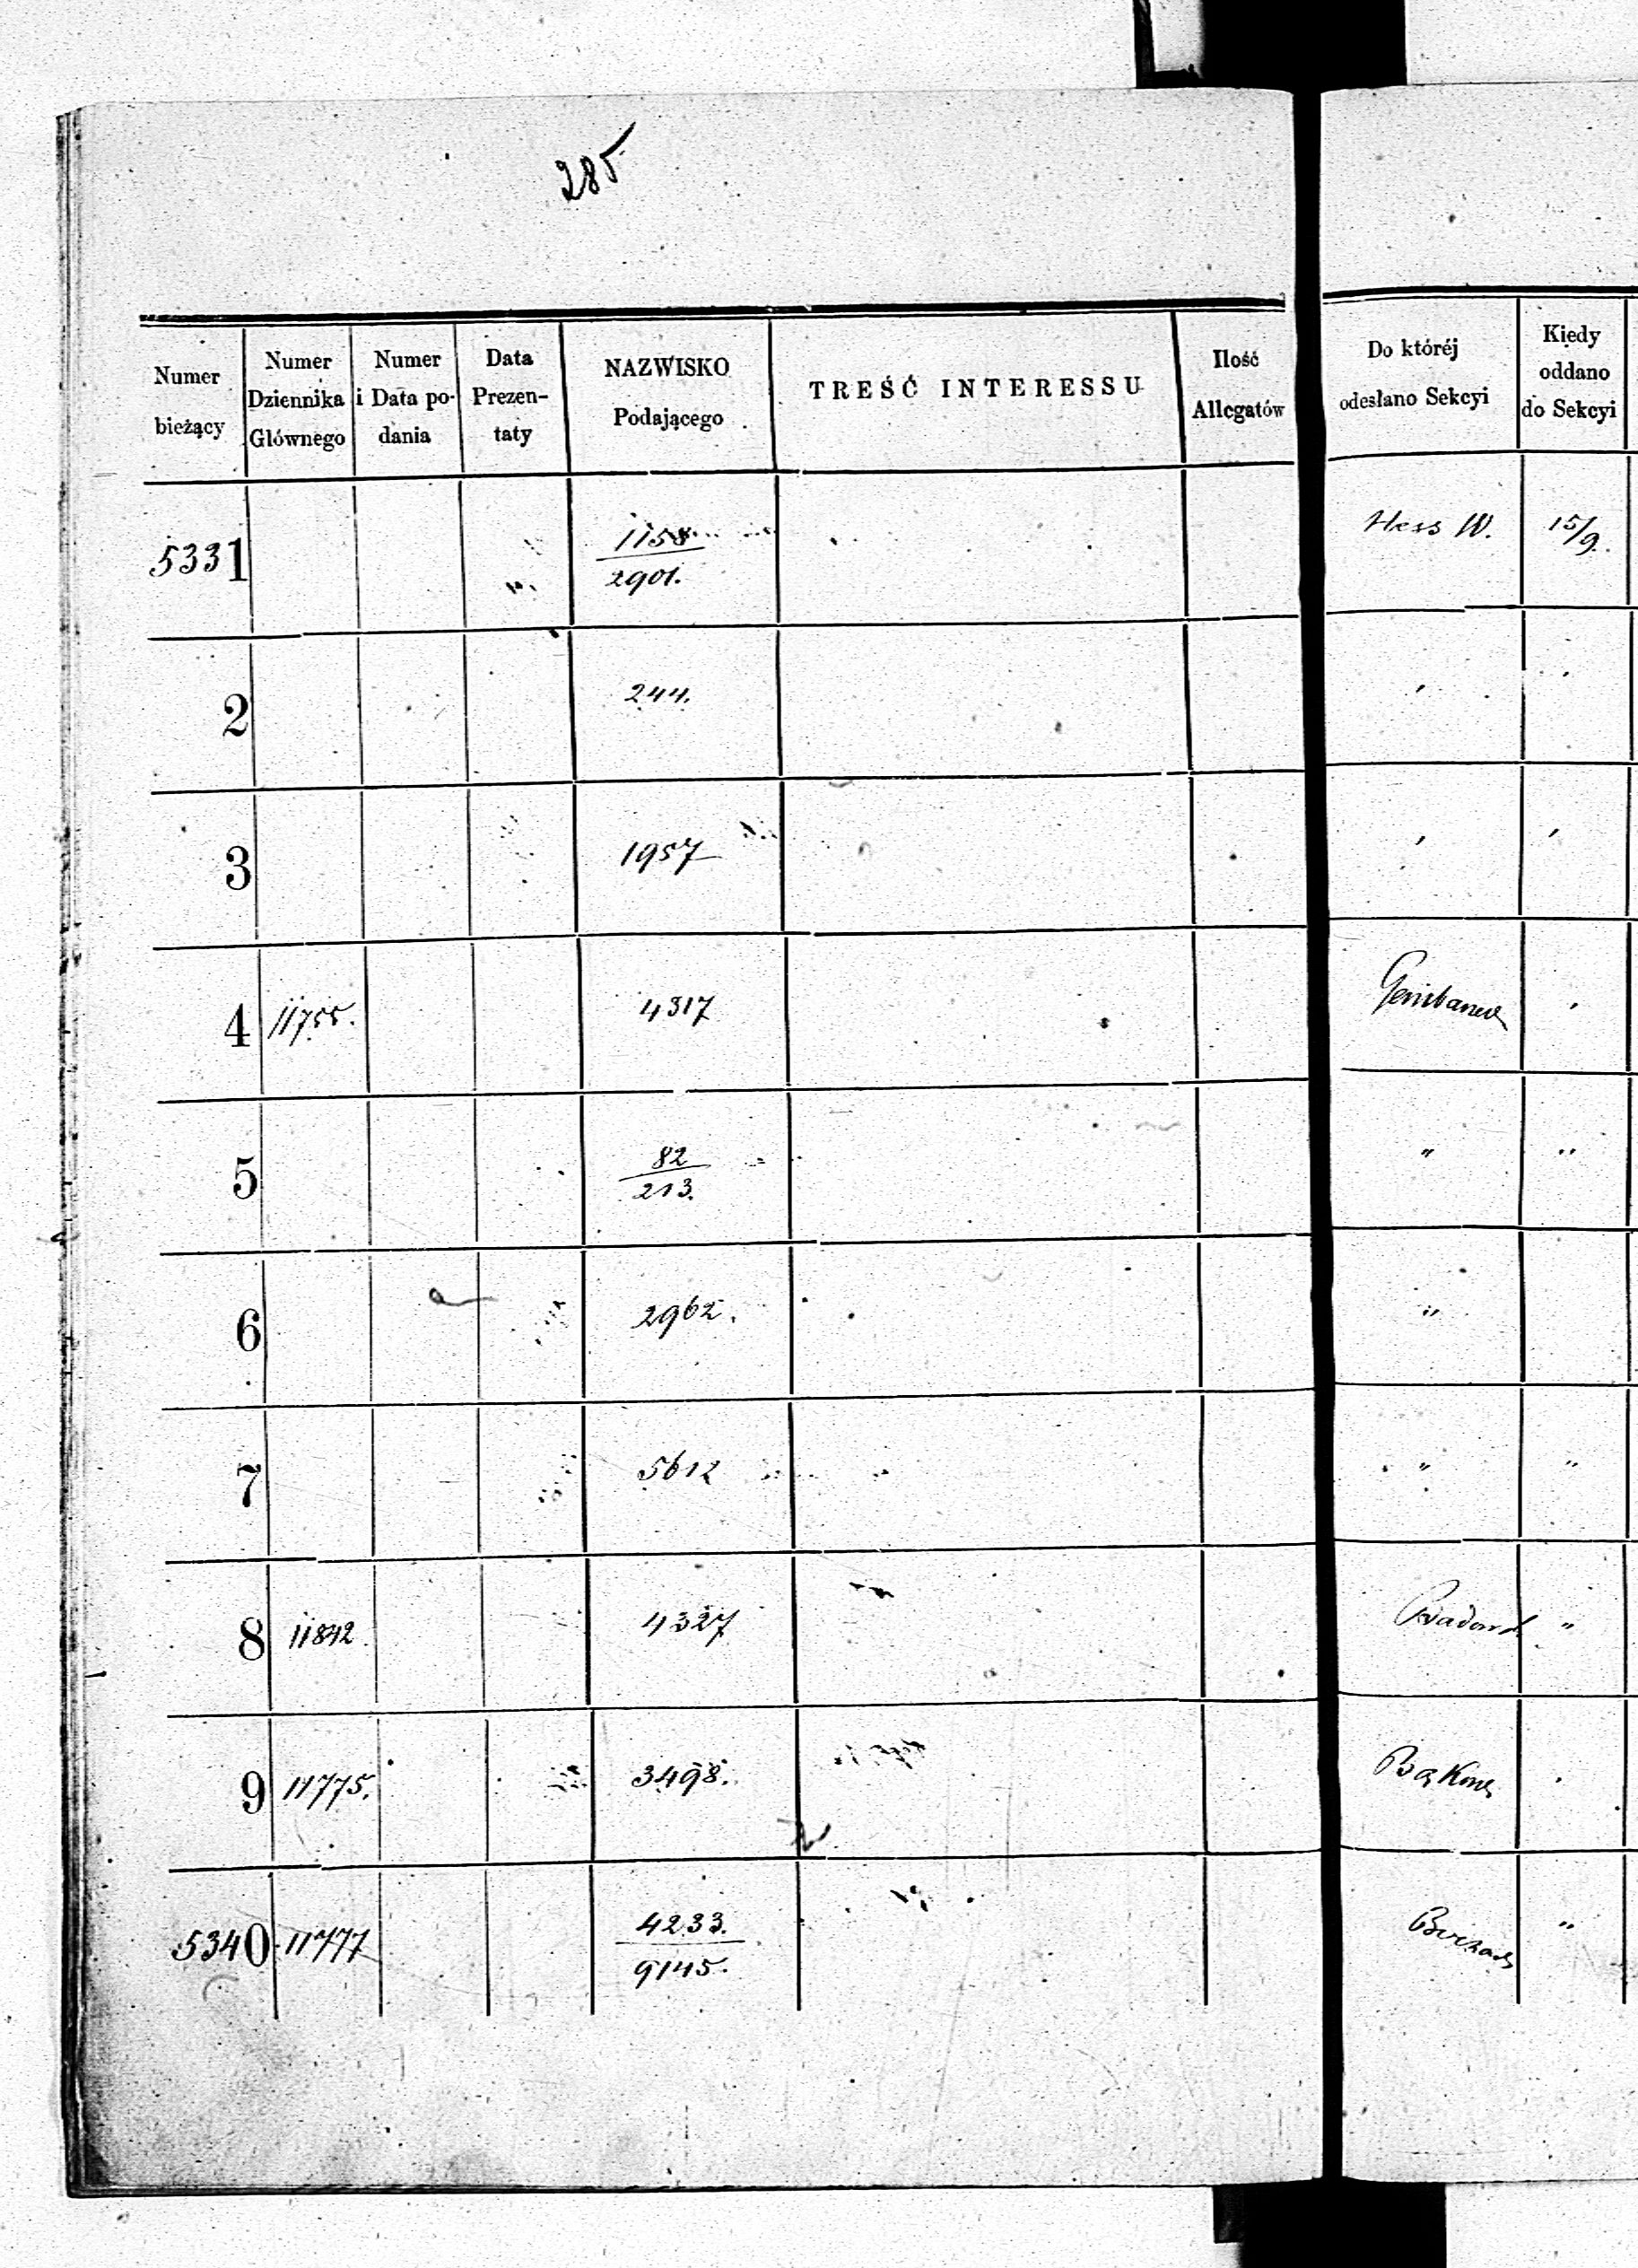 285
Numer bieżący
Numer Dziennika Głównego
Numer i Data podania
Data Prezentaty
NAZWISKO Podającego
TREŚĆ INTERESSU
Ilość Allegatów
Do któréj odesłano Sekcyi
Kiedy oddano do Sekcyi
5331 1158 Hess W. 15/9.
2901.
2 244. ,
3 1957 , ,
4 11755. 4317 ,
5 82 " "
213.
6 2962. "
7 5612 " "
8 11842 4327 "
9 11775. 3498.
5340 11777 4233. "
9145.